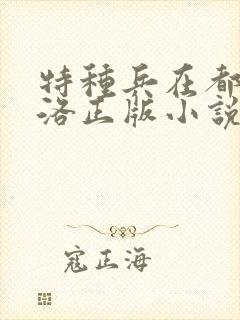 特種兵在都
洛正版小說
寇正海